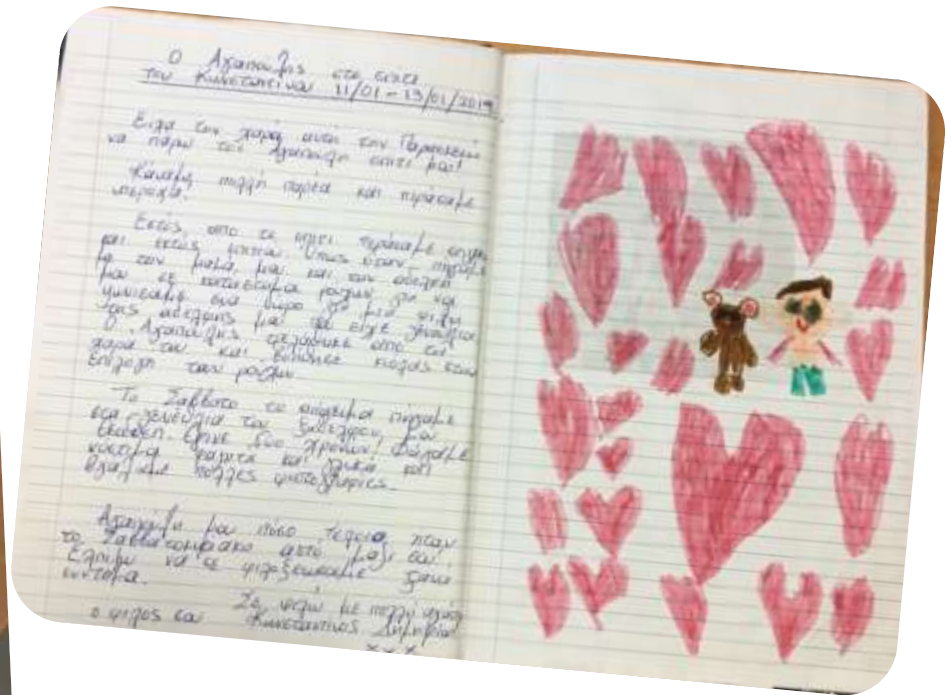 Ο Αγαπούλης στο σπίτι
του Κωνσταντίνου 11/01 - 13/01/2019
Είχα την χαρά αυτή την Παρασκευή
να πάρω τον Αγαπούλη σπίτι μου!
Κάναμε πολλή παρέα και περάσαμε
υπέροχα.
Εκτός, από το σπίτι περάσαμε
και εκτός σπιτιού. Όπως όταν πήγαμε
με την μαμά μου και την αδελφή
μου σε κατάστημα ρούχων για να
ένα δώρο για μια φίλη
της αδελφής μου που είχε γενέθλια
Ο Αγαπούλης από την
χαρά του και κιόλας στην
επιλογή των ρούχων.
Το Σάββατο το απόγευμα πήγαμε
στα γενέθλια του ξαδέλφου μου
έγινε δύο χρονών. Φάγαμε
νόστιμα φαγητά και γλυκά και
βγάλαμε πολλές φωτογραφίες.
Αγαπούλη μου πόσο τέλεια ήταν
το Σαββατοκύριακο αυτό μαζί σου!
Ελπίζω να σε φιλοξενήσουμε ξανά
σύντομα.
Σε φιλώ με πολλή αγάπη
ο φίλος σου Κωνσταντίνος
x x x